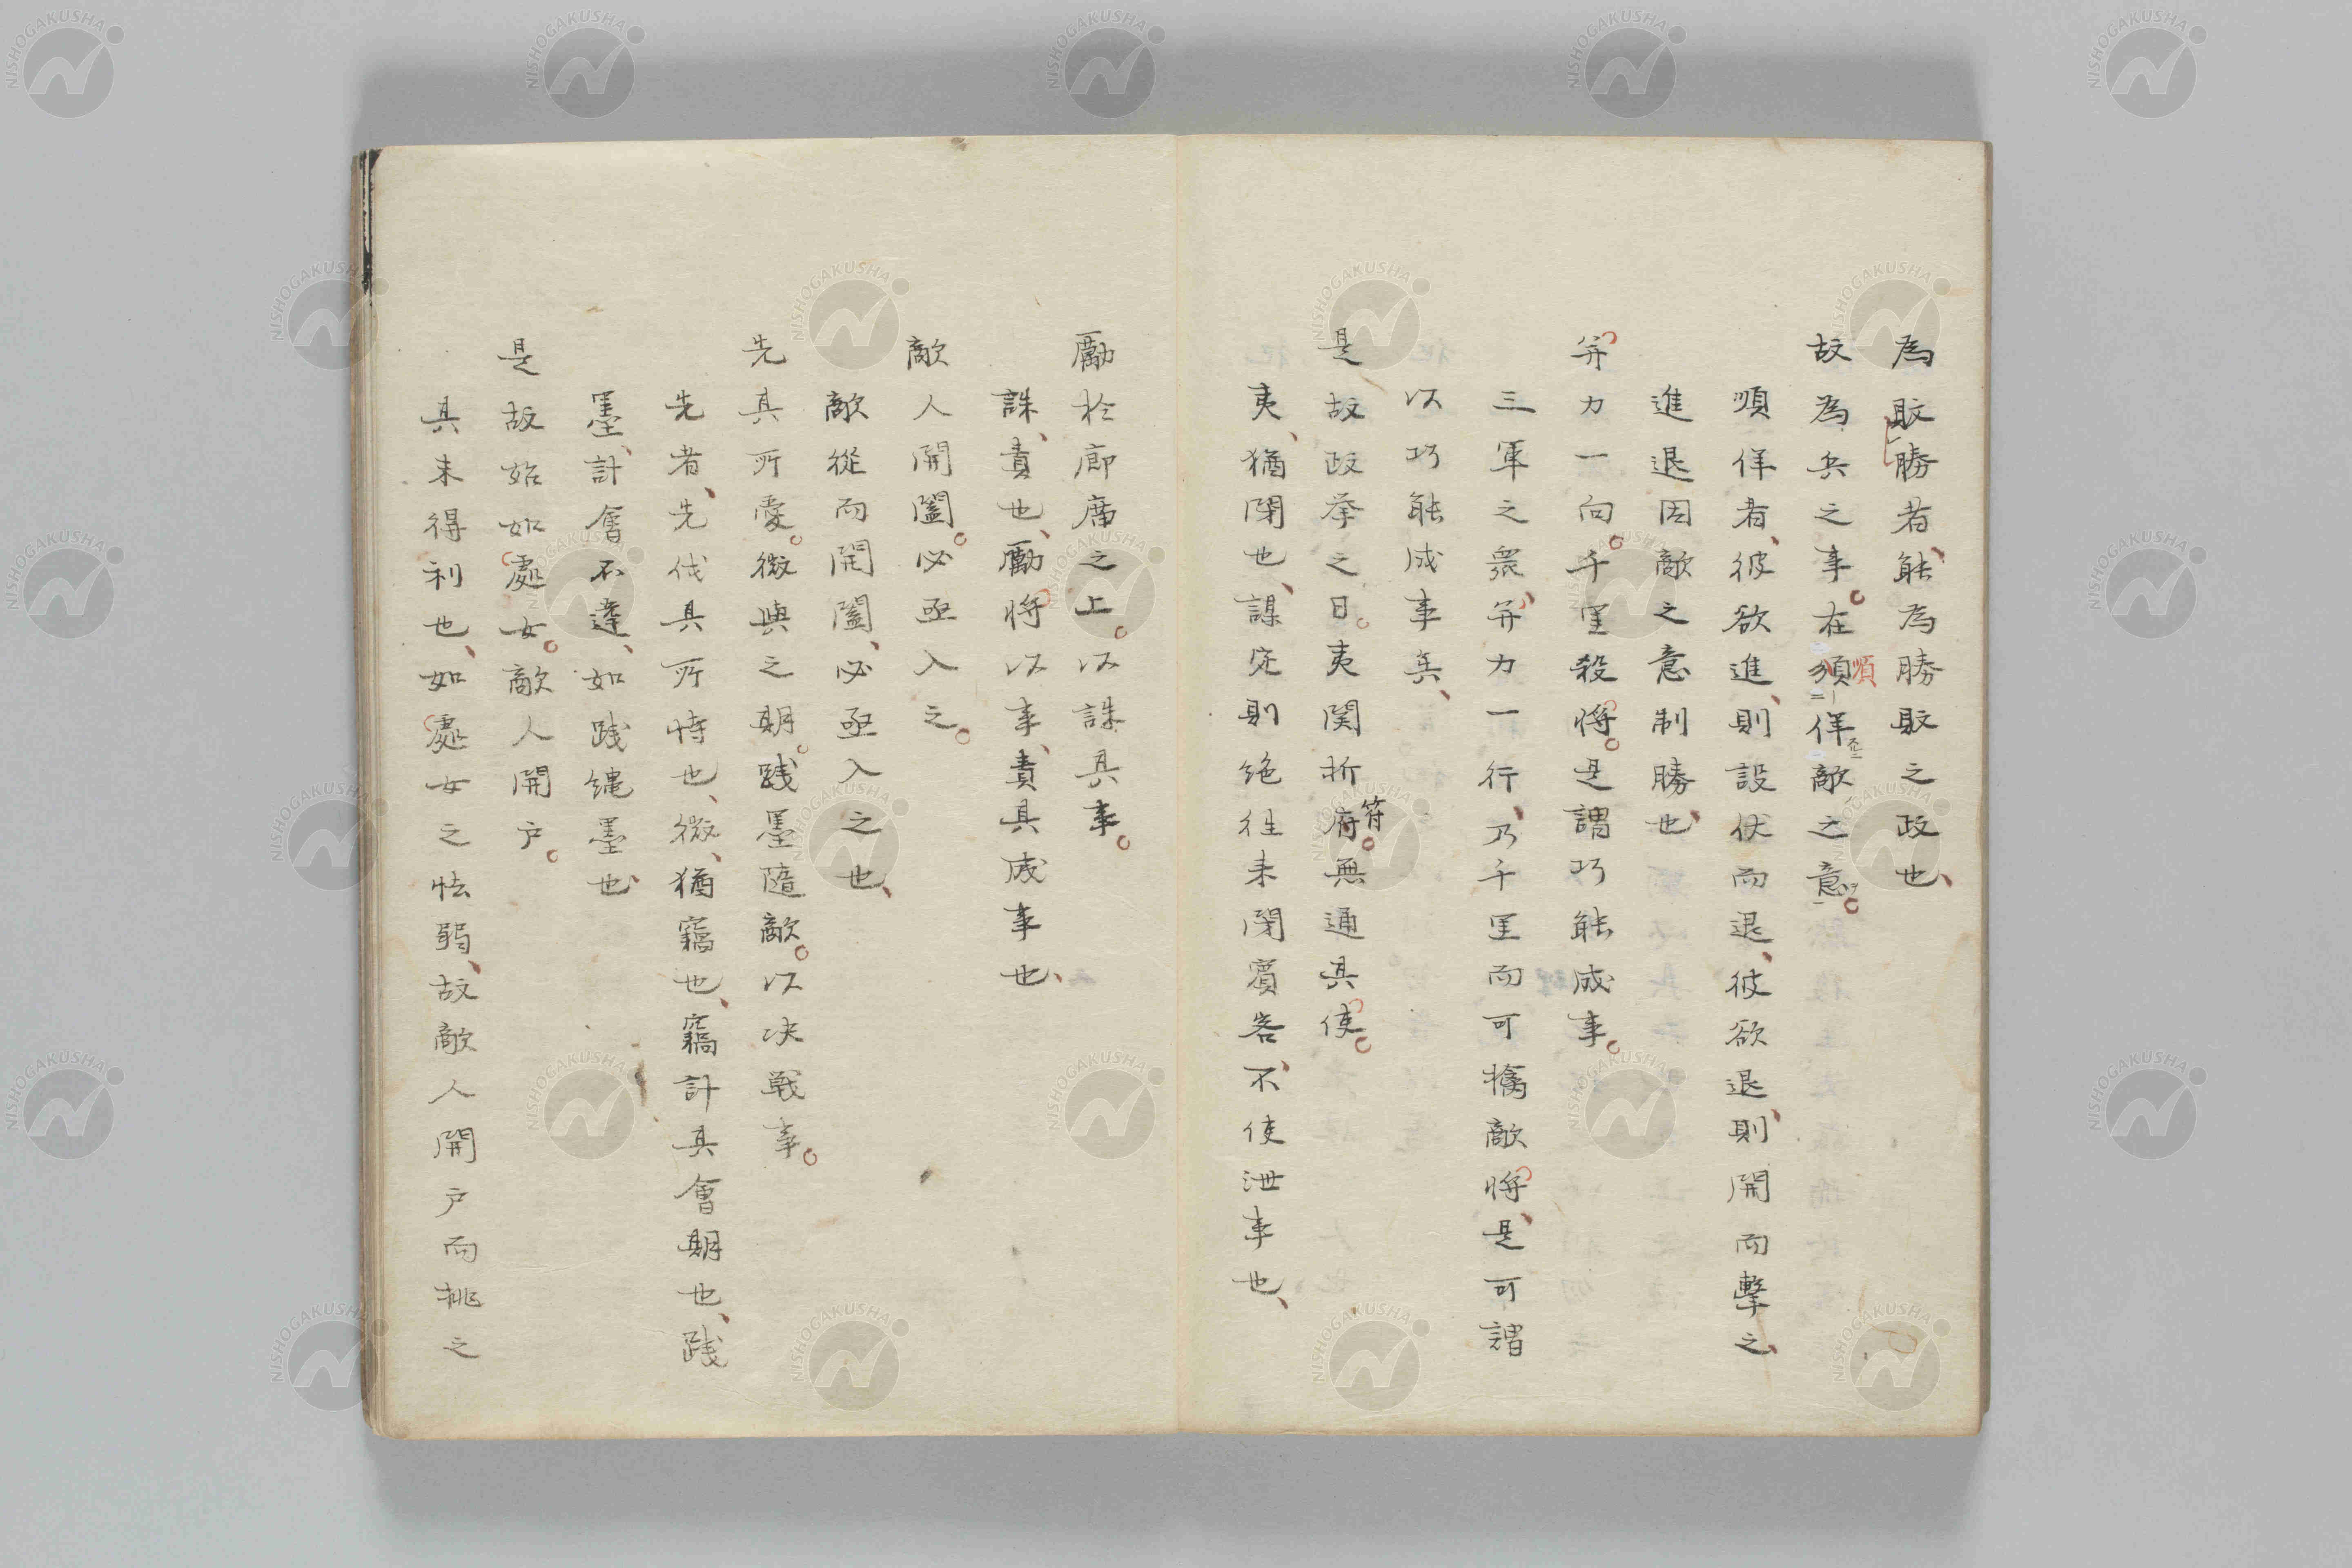 為敗勝者、能為勝敗之政也、
故為兵之事。在須順佯敵之意。
順佯者、彼欲進、則設伏而退、彼欲退、則開而擊之、
進退因敵之意制勝也、
并力一向。千里殺將。是謂巧能成事。
三軍之眾、并力一行、乃千里而可擒敵將、是可謂
以巧能成事矣、
是故政挙之日。夷関折府符。無通其使。
夷、猶閉也、謀定則絶往来閉賓客、不使泄事也、
勵於廊庿之上。以誅其事。
誅、責也、勵將以事、責其成事也、
敵人開闔。必亟入之。
敵從而開闔、必亟入之也、
先其所愛。微與之期。践墨隨敵。以决戦事。
先者、先伐其所恃也、微、猶竊也、竊計其會期也、践
墨、計會不違、如践縄墨也、
是故始如處女。敵人開戸。
其未得利也、如處女之怯弱、故敵人開戸而挑之
NISHOGAKUSHA